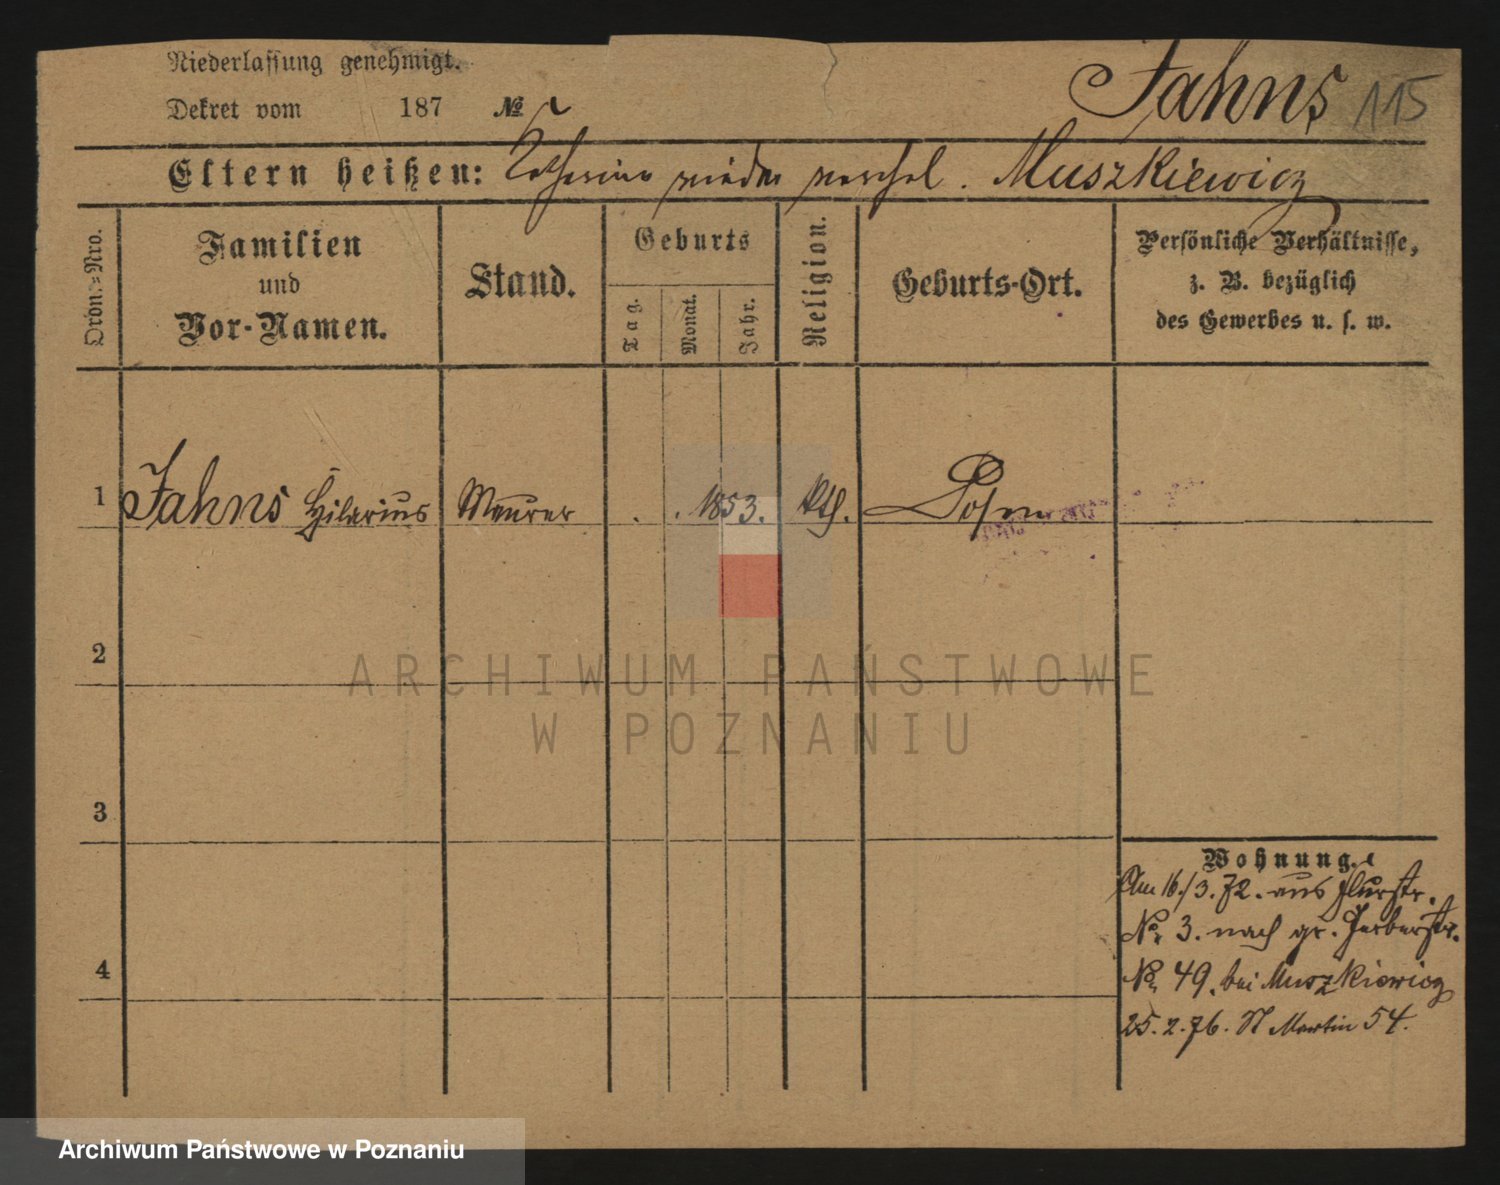 Niederlassung genehmigt.
Dekret vom 187 №
Jahns 115
Eltern heißen: Catharina wieder verehel. Muszkiewicz
Ordn.-Nro.
Familien
und
Vor-Namen.
Stand.
Geburts
Tag.
Monat.
Jahr.
Religion.
Geburts-Ort.
Persönliche Verhältnisse,
z. B. bezüglich
des Gewerbes u. s. w.
1 Jahns Hilarius Maurer . . 1853. kth. Posen
2
ARCHIWUM PAŃSTWOWE
W POZNANIU
3
Wohnung.
Am 16/3.72. aus Flurstr.
No. 3. nach gr. Gerberstr.
4
No. 49. bei Muszkiewicz
25.2.76. St Martin 54.
Archiwum Państwowe w Poznaniu